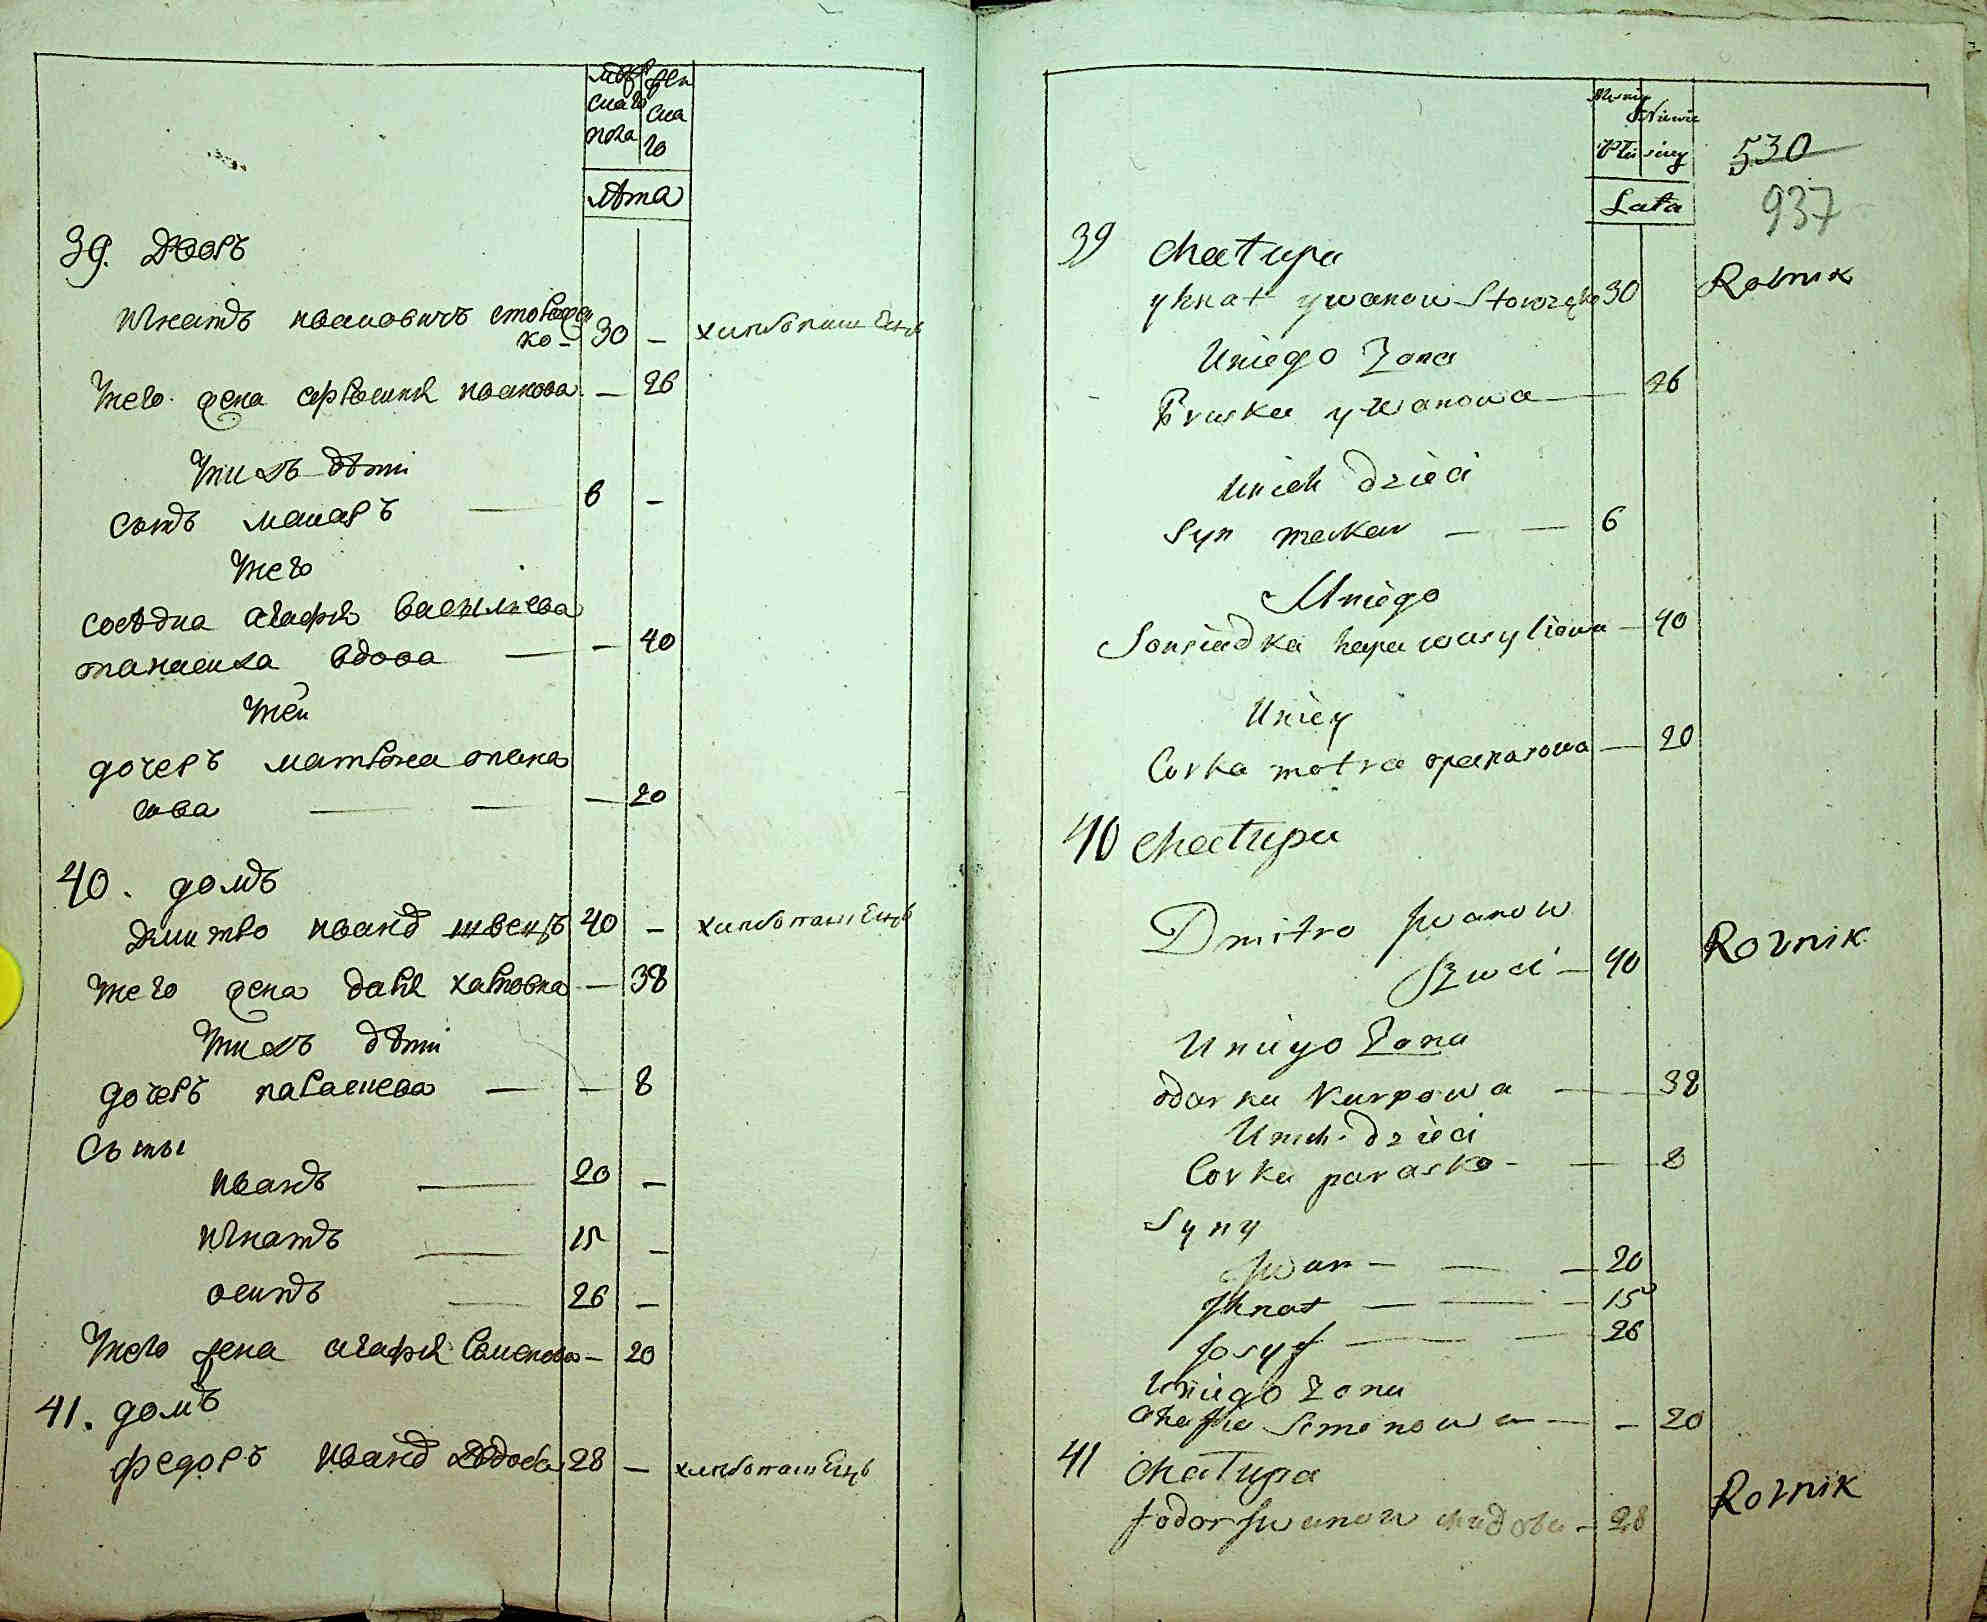 мужскаго пола
женскаго
Лѣта
39. Дворъ
Игнатъ ивановичъ стовбрен
ко – 30 – хлибопашецъ
Жего жена ефросиния иванова – 26
Жихъ дѣти
Сынъ макаръ — 6 –
Жего
соседка агафия василиева
панасиха вдова — – 40
Жей
дочеръ матрона опана
сова — — – 20
40. домъ
Дмитро иванов швецъ 40 – хлибопашецъ
Жего жена дария карповна – 38
Жихъ дѣти
дочеръ парасцева — – 8
Сыны
иванъ — 20 –
игнатъ — 15 –
осипъ — 26 –
Жего жена агафия семенова – 20
41. домъ
федоръ иванов худоба 28 – хлибопашецъ
Męskiey Niewie
Płci
Lata
530
937
39 Chałupa
yhnat ywanow 30 Rolnik
Uniego Zona
Pruska ywanowa — 26
Unich dzieci
Syn makar — — 6
Uniego
Sonsiadka hapa wasyliowa – 40
Uniey
Corka motra opanasowa — 20
40 Chałupa
Dmitro Jwanow
Szweć – 40 Rolnik
Uniego Zona
odarka Karpowa — 38
Unich dzieci
Corka parasko – — 8
Syny
Jwan – — – 20
Jhnat — — – 15
Josyf — — – 26
Uniego Zona
ohafia Semenowa — – 20
41 Chałupa
fodor Jwanow chudoba – 28 Rolnik